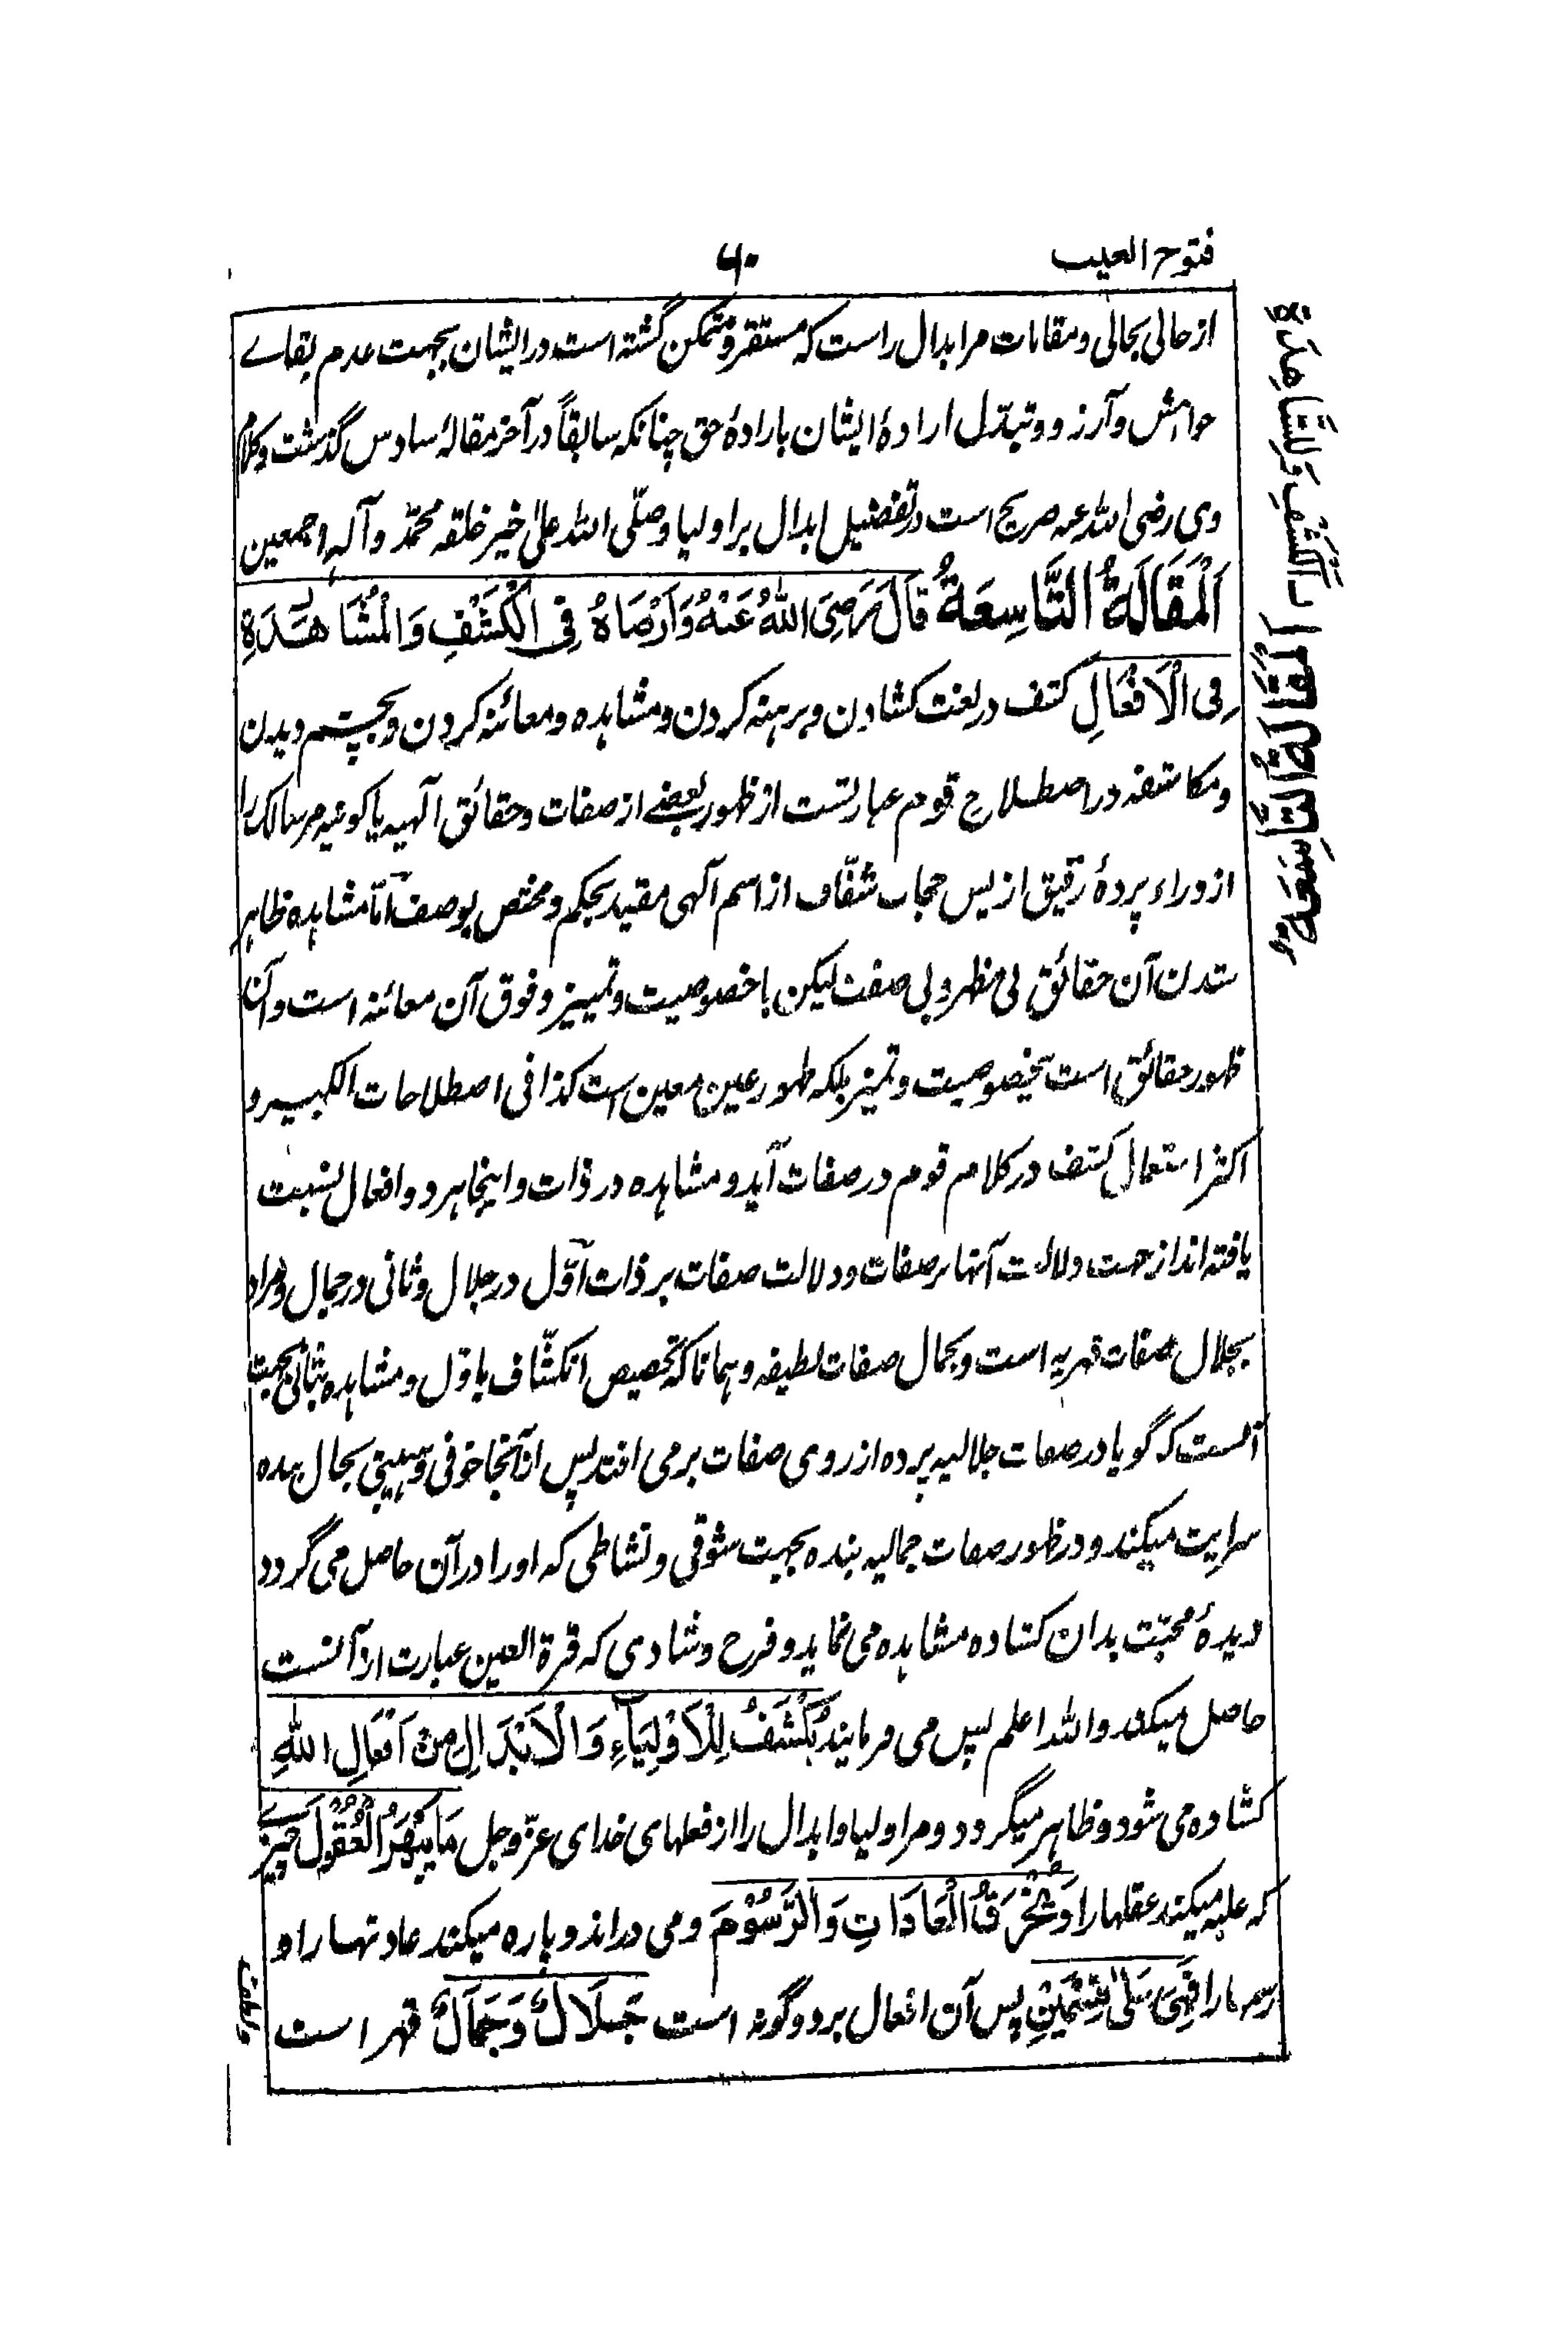 فتوح الغیب
۶۰
از حالی بحالی و مقامات مر ابدال راست که مستقر و متمکن گشته است در ایشان بجهت عدم بقاے
خواهش و آرزو و تبدّل ارادهٔ ایشان بارادهٔ حق چنانکه سابقاً در آخر مقالهٔ سادس گذشت و کلام
وی رضی الله عنه صریح است در تفضیل ابدال بر اولیا و صلّی الله علیٰ خیر خلقه محمّد و آلهٖ اجمعین
اَلْمَقَالَةُ التَّاسِعَةُ قَالَ رَضِیَ اللهُ عَنْهُ وَاَرْضَاهُ فِی الْکَشْفِ وَالْمُشَاهَدَةِ
فِی الْاَفْعَالِ کشف در لغت کشادن و برهنه کردن و مشاهده و معائنه کردن و بچشم دیدن
و مکاشفه در اصطلاح قوم عبارتست از ظهور بعضے از صفات و حقائق آلهیه یا کونیه مر سالک را
از وراء پردهٔ رقیق از پس حجاب شفّاف از اسم آلهی مقید بحکم و مختص بوصف امّا مشاهده ظاهر
شدن آن حقائق بی مظهر و بی صفت لیکن با خصوصیت و تمییز و فوق آن معائنه است و آن
ظهور حقائق است بخصوصیت و تمیز بلکه ظهور عین معین است کذا فی اصطلاحات الکبیر و
اکثر استعمال کشف در کلام قوم در صفات آید و مشاهده در ذات و اینجا هر دو وافعال نسبت
یافته اند از جهت دلالت آنها بر صفات و دلالت صفات بر ذات اوّل در جلال و ثانی در جمال و مراد
بجلال صفات قهریه است و بجمال صفات لطیفه و همانا که تخصیص انکشاف باوّل و مشاهده بثانی بجهت
آنست که گویا در صفات جلالیه پرده از روی صفات بر می افتد پس از آنجا خوفی و هیبتی بحال بنده
سرایت میکند و در ظهور صفات جمالیه بنده بجهت شوقی و نشاطی که اورا در آن حاصل می گردد
دیدهٔ محبّت بدان کشاده مشاهده می نماید و فرح و شادی که قرة العین عبارت از آنست
حاصل میکند والله اعلم پس می فرمایند یُکْشَفُ لِلْاَوْلِیَآءِ وَالْاَبْدَالِ مِنْ اَفْعَالِ اللهِ
کشاده می شود و ظاهر میگردد و مر اولیا و ابدال را از فعلهای خدای عزّ و جل مَا یَبْهَرُ الْعُقُوْلَ چیزے
که غلبه میکند عقلها را وَتُخْرَقُ الْعَادَاتِ وَالرَّسُوْمَ و می دراند و پاره میکند عادتها را و
رسمها را فَهِیَ عَلٰی قِسْمَیْنِ پس آن افعال بر دو گونه است جَلَالٌ وَجَمَالٌ قهر است
ولطف
اَلْمَقَالَةُ التَّاسِعَةُ فِی الْکَشْفِ وَالْمُشَاهَدَةِ